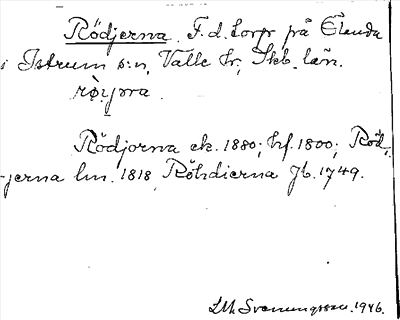 Rödjerna. F. d. torp på Ölanda
i Istrum s:n, Valle hr, Skb. län.
Rödjorna ek. 1880; hf. 1800; Röd-
jerna lm. 1818, Röhdierna Jb. 1749.
LM Svenungsson. 1946.